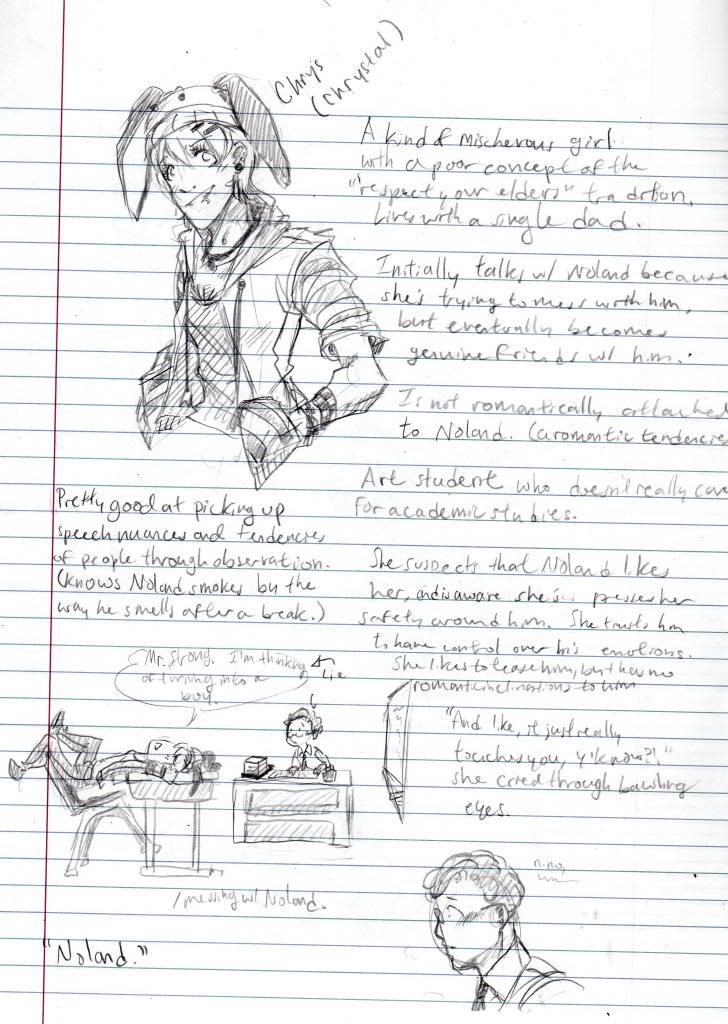 Chrys
(Chrystal)
A kind & mischevous girl
with a poor concept of the
"respect your elders" tradition.
Lives with a single dad.
Initially talks w/ Noland because
she's trying to mess with him,
but eventually becomes
genuine friends w/ him.
Is not romantically attached
to Noland. (aromantic tendencies
Art student who doesn't really care
for academic studies.
Pretty good at picking up
speech nuances and tendencies
of people through observation.
(knows Noland smokes by the
way he smells after a break.)
She suspects that Noland likes
her, and is aware she presses her
safety around him. She trusts him
to have control over his emotions.
She likes to tease him, but has no
romantic inclinations to him
Mr. Strong. I'm thinking
of turning into a
boy.
Lie
"And like, it just really
touches you, y'know?!"
she cried through bawling
eyes.
/messing w/ Noland.
"Noland."